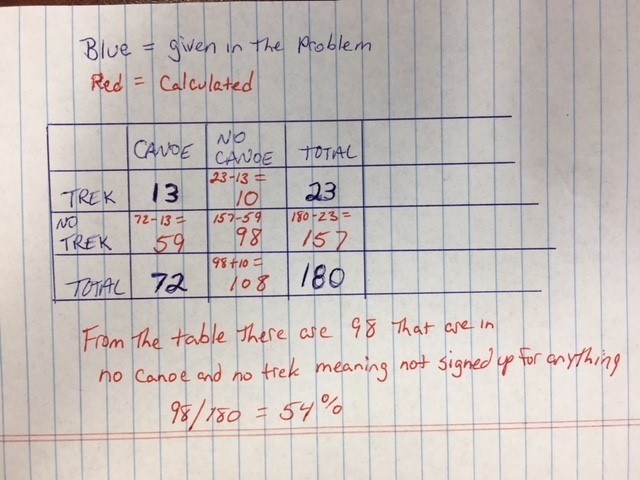 Blue = given in the Problem
Red = Calculated
CANOE NO CANOE TOTAL
TREK 13 23-13= 10 23
NO TREK 72-13= 59 157-59 98 180-23= 157
TOTAL 72 98+10= 108 180
From the table there are 98 that are in
no canoe and no trek meaning not signed up for anything
98/180 = 54%